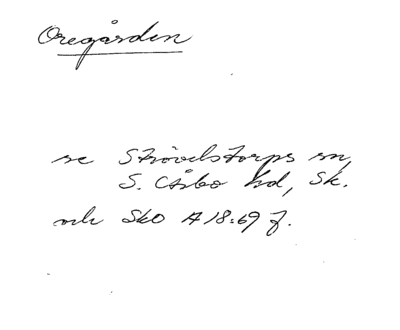 Oregården
se Strövelstorps sn,
S. Åsbo hd, Sk.
och SkO A 18:69 f.